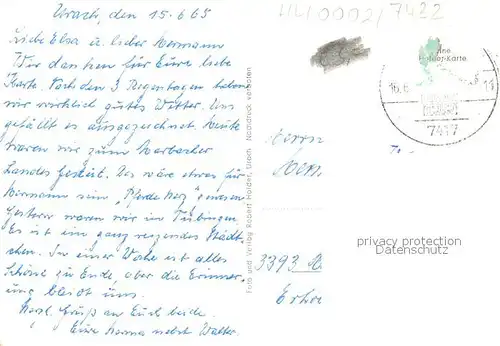 Urach, den 15.6.65
Liebe Elsa u. lieber Hermann
Wir danken für Eure liebe
Karte. Nach den 3 Regentagen haben
wir wirklich gutes Wetter. Uns
gefällt es ausgezeichnet. Heute
waren wir zum Marbacher
Landes Gestüt. Das wäre etwas für
Hermann sein "Pferde Herz" gewesen
Gestern waren wir in Tübingen
Es ist ein ganz reizendes Städt-
chen. In einer Woche ist alles
Schöne zu Ende aber die Erinner-
ung bleibt uns.
Herzl. Grüße an Euch beide.
Eure Herma nebst Walter.
Foto und Verlag Robert Holder, Urach Nachdruck verboten
4410002/7422
Eine
Holder-Karte
16.6.
11
7417
Herrn
3393
privacy protection
Datenschutz